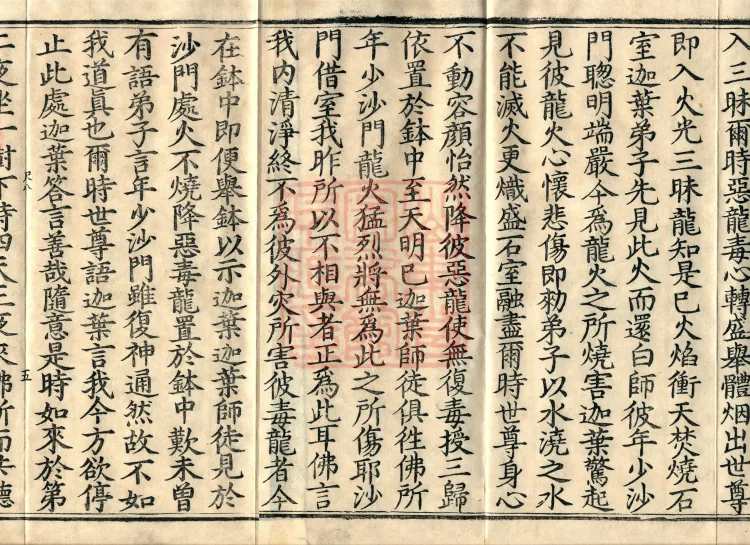 入三昧爾時惡龍毒心轉盛舉體烟出世尊
即入火光三昧龍知是已火焰衝天焚燒石
室迦葉弟子先見此火而還白師彼年少沙
門聦明端嚴今為龍火之所燒害迦葉驚起
見彼龍火心懷悲傷即勑弟子以水澆之水
不能滅火更熾盛石室融盡爾時世尊身心
不動容顏怡然降彼惡龍使無復毒授三歸
依置於鉢中至天明已迦葉師徒俱往佛所
年少沙門龍火猛烈將無為此之所傷耶沙
門借室我昨所以不相與者正為此耳佛言
我内清淨終不為彼外灾所害彼毒龍者今
在鉢中即便舉鉢以示迦葉迦葉師徒見於
沙門處火不燒降惡毒龍置於鉢中歎未曾
有語弟子言年少沙門雖復神通然故不如
我道真也爾時世尊語迦葉言我今方欲停
止此處迦葉答言善哉隨意是時如來於第
尺八 五
二夜坐一樹下時四天王夜來佛所而共